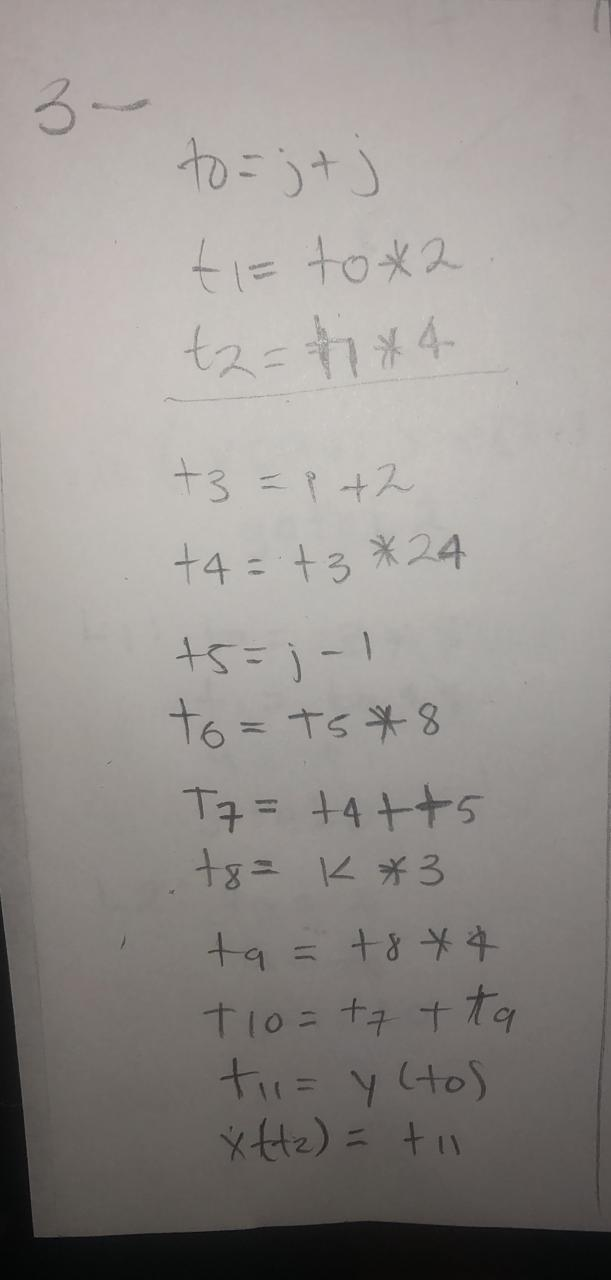 3-
t0 = j + j
t1 = t0 * 2
t2 = t1 * 4
t3 = i + 2
t4 = t3 * 24
t5 = j - 1
t6 = t5 * 8
T7 = t4 + t5
t8 = K * 3
t9 = t8 * 4
t10 = t7 + t9
t11 = y (t0)
x(t2) = t11